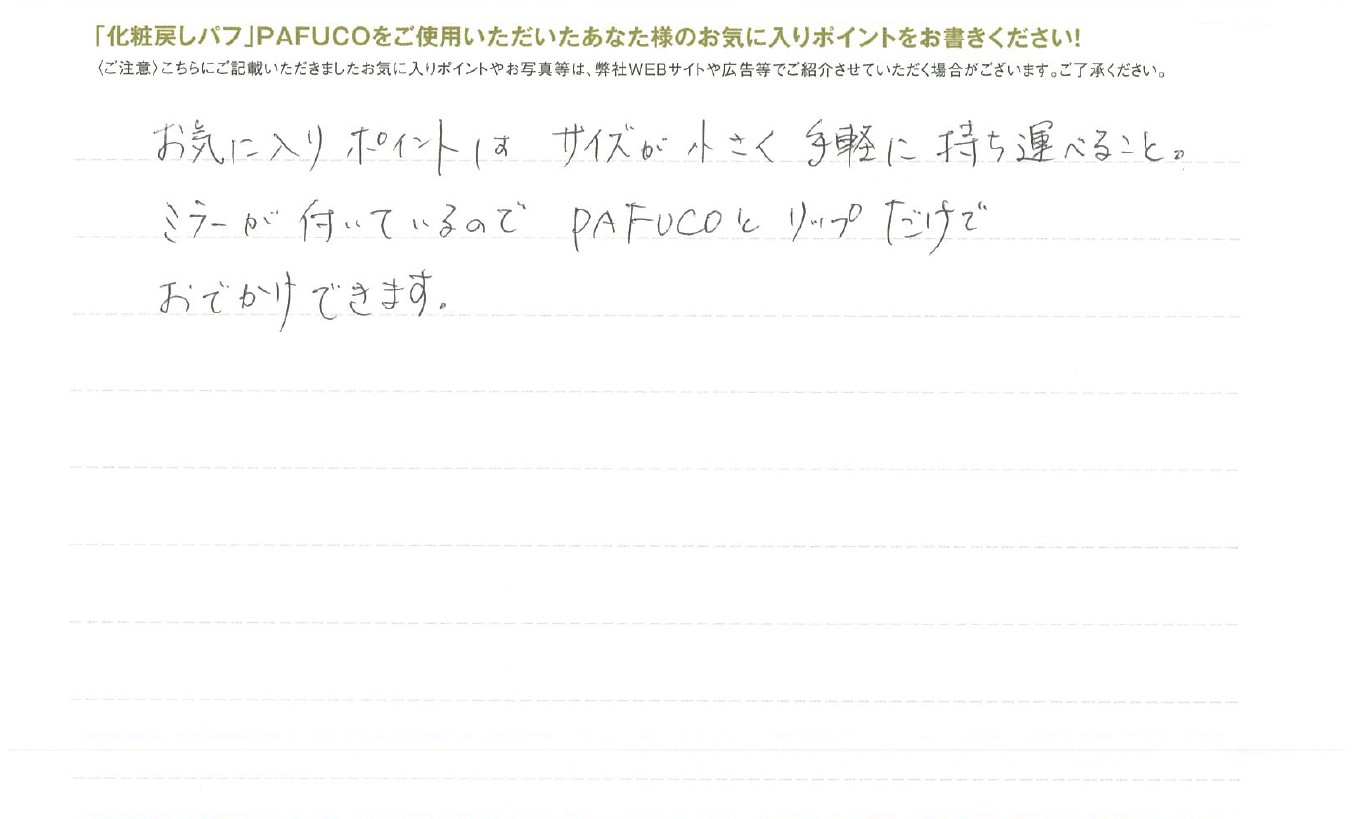 「化粧戻しパフ」PAFUCOをご使用いただいたあなた様のお気に入りポイントをお書きください!
〈ご注意〉こちらにご記載いただきましたお気に入りポイントやお写真等は、弊社WEBサイトや広告等でご紹介させていただく場合がございます。ご了承ください。
お気に入りポイントは サイズが小さく手軽に持ち運べること。
ミラーが付いているので PAFUCOとリップだけで
おでかけできます。